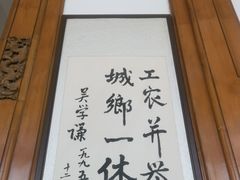 工农并兴
城鄉一体
吴学谦
一九九五
十二